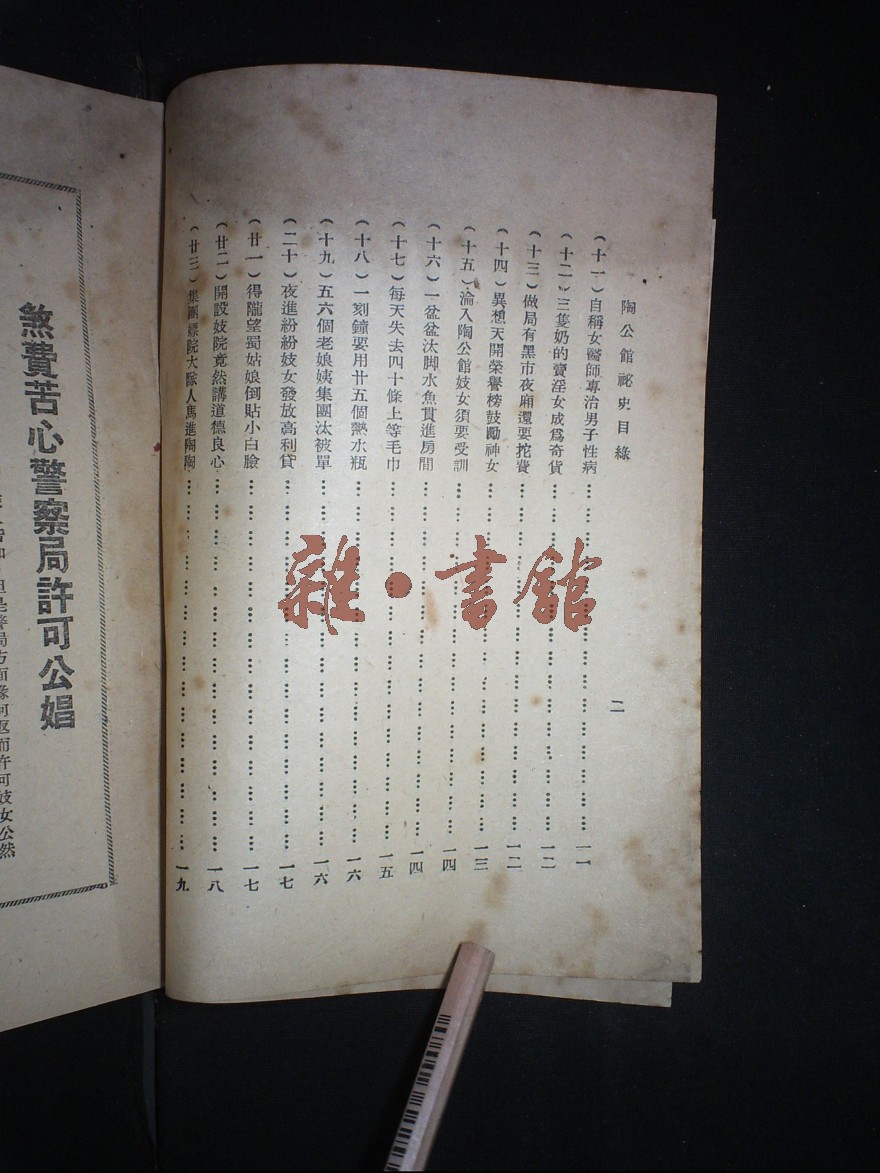 陶公館祕史目錄
二
(十一)自稱女醫師專治男子性病……一一
(十二)三隻奶的賣淫女成爲奇貨……一二
(十三)做局有黑市夜廂還要挖費……一二
(十四)異想天開榮譽榜鼓勵神女……一三
(十五)淪入陶公館妓女須要受訓……一四
(十六)一盆盆汰脚水魚貫進房間……一四
(十七)每天失去四十條上等毛巾……一五
(十八)一刻鐘要用廿五個熱水瓶……一六
(十九)五六個老娘姨集團汰被單……一六
(二十)夜進紛紛妓女發放高利貸……一七
(廿一)得隴望蜀姑娘倒貼小白臉……一七
(廿二)開設妓院竟然講道德良心……一八
(廿三)集團嫖院大隊人馬進陶陶……一九
雜·書館
煞費苦心警察局許可公娼
但是警局方面緣何返而許可妓女公然